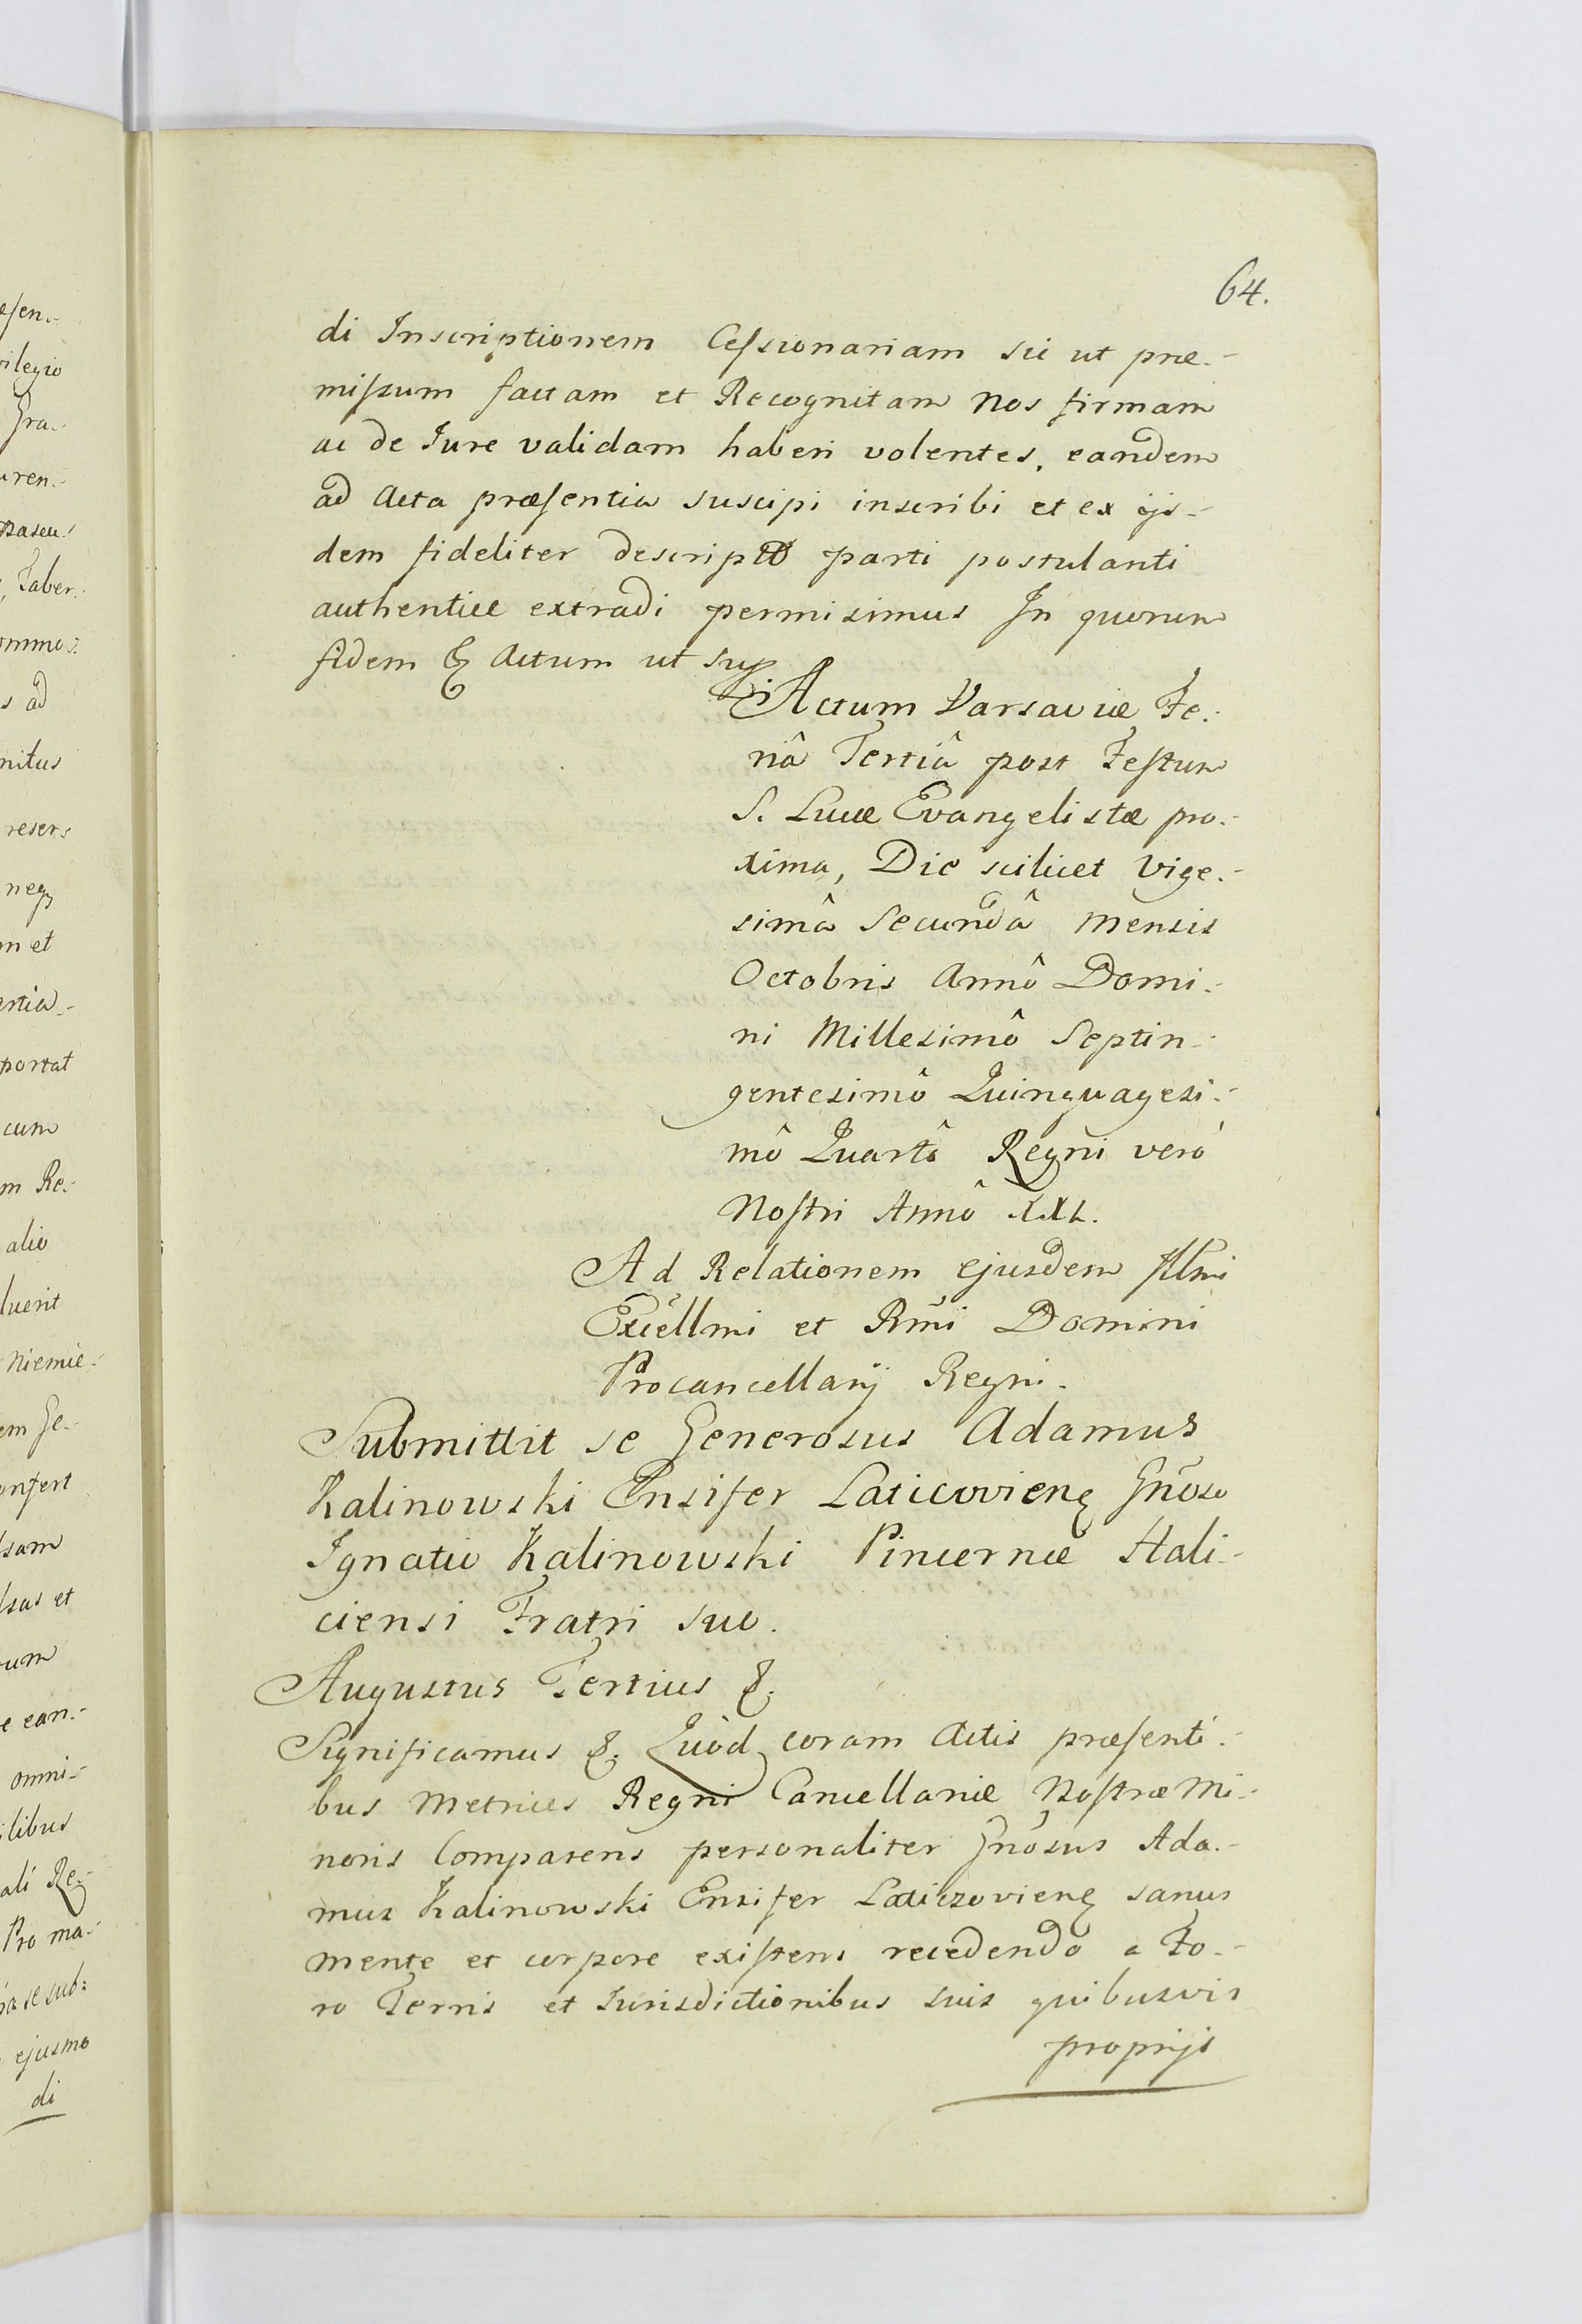 64.
di Inscriptionem Cessionariam sic ut præ-
missum factam et Recognitam Nos firmam
ac de Jure validam haberi volentes, eandem
ad Acta præsentia suscipi inscribi et ex ijs-
dem fideliter descriptō parti postulanti
authenticè extradi permisimus In quorum
fidem & Actum ut sup
Actum Varsaviæ Fe-
riâ Tertiâ post Festum
S. Lucæ Evangelistæ pro-
xima, Die scilicet Vige-
simâ Secundâ Mensis
Octobris Annô Domi-
ni Millesimô Septin-
gentesimô Quinquagesi-
mô Quartô Regni verò
Nostri Annô XXI.
Ad Relationem ejusdem Illmi
Excellmi et Rm̃i Domini
Procancellarij Regni.
Submittit se Generosus Adamus
Kalinowski Ensifer Laticovieñ Gñoso
Ignatio Kalinowski Pincernæ Hali-
ciensi Fratri suo.
Augustus Tertius &.
Significamus &. Quòd coram Actis præsenti-
bus Metrices Regni Cancellariæ Nostræ Mi-
noris Comparens personaliter Gñosus Ada-
mus Kalinowski Ensifer Laticzovieñ sanus
mente et corpore existens recedendo a Fo-
ro Terris et Jurisdictionibus suis quibusvis
proprijs
ilegio
Gra-
uren-
Taber-
s ad
nitus
reser-
neq
m et
entia-
portat
cum
m Re-
alio
luerit
Niemie-
em Ge-
onfert
sam
sas et
rum
e ean-
omni-
ilibus
ali Re-
Pro ma-
ra se sub-
ejusmo
di